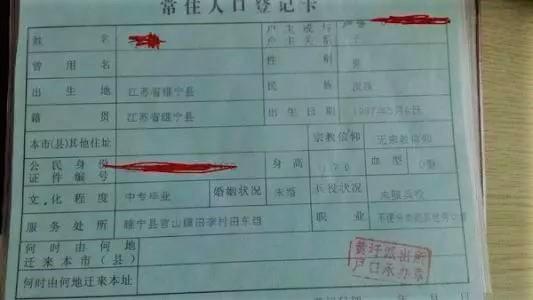 常住人口登记卡
姓 名 户主或与户主关系 子
曾用名 性 别 男
出生地 江苏省睢宁县 民 族 汉族
籍 贯 江苏省睢宁县 出生日期 1987年5月6日
本市(县)其他住址 宗教信仰 无宗教信仰
公民身份证件编号 身高 血型
文化程度 中专毕业 婚姻状况 未婚 兵役状况 未服兵役
服务处所 睢宁县官山镇田李村田东组 职业
何时由何地迁来本市(县)
何时由何地迁来本址
派出所
户口承办章